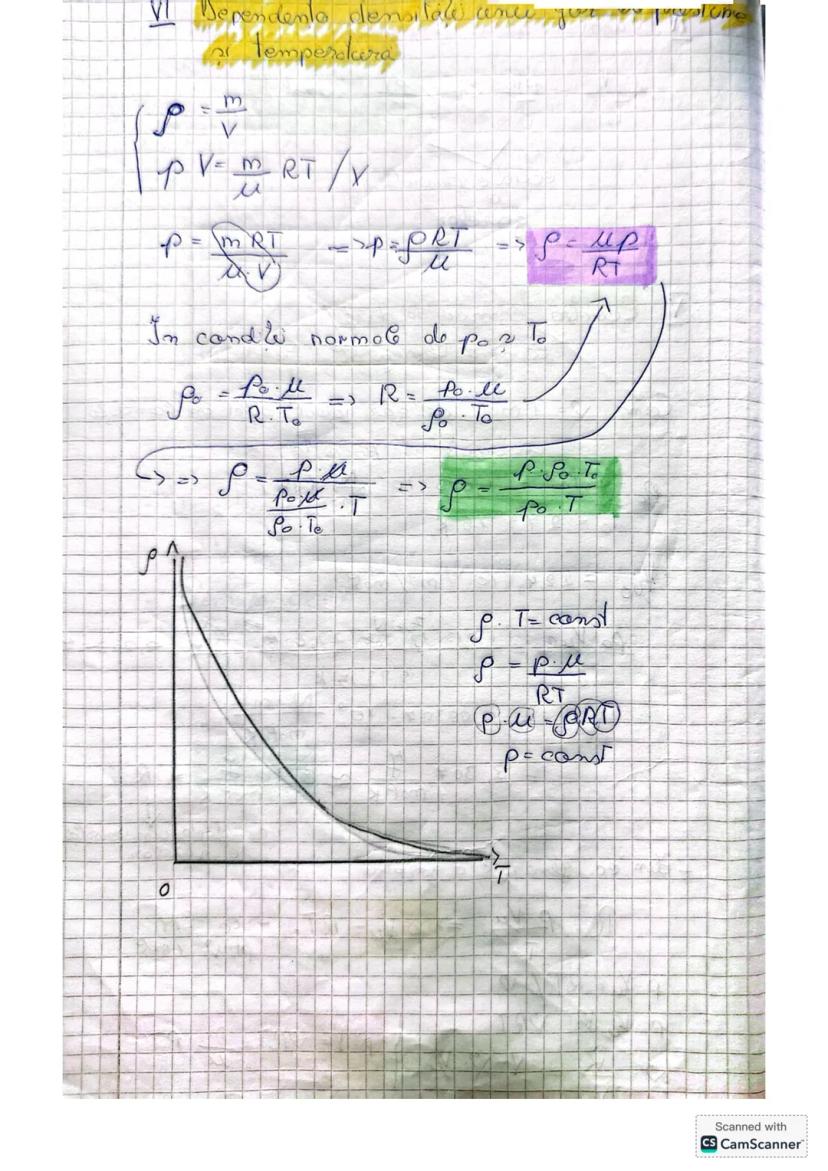 VI Dependența densității unui gaz de presiune
și temperatură
ρ = m/V
p V = m/μ RT /V
p = m RT/μ·V => p = ρRT/μ => ρ = μp/RT
În condiții normale de p₀ și T₀
ρ₀ = p₀·μ/R·T₀ => R = p₀·μ/ρ₀·T₀
=> ρ = p·μ/(p₀·μ/ρ₀·T₀ ·T) => ρ = p·ρ₀·T₀/p₀·T
ρ
ρ · T = const
ρ = p·μ/RT
p·μ = ρRT
p = const
T
0
Scanned with
CS CamScanner